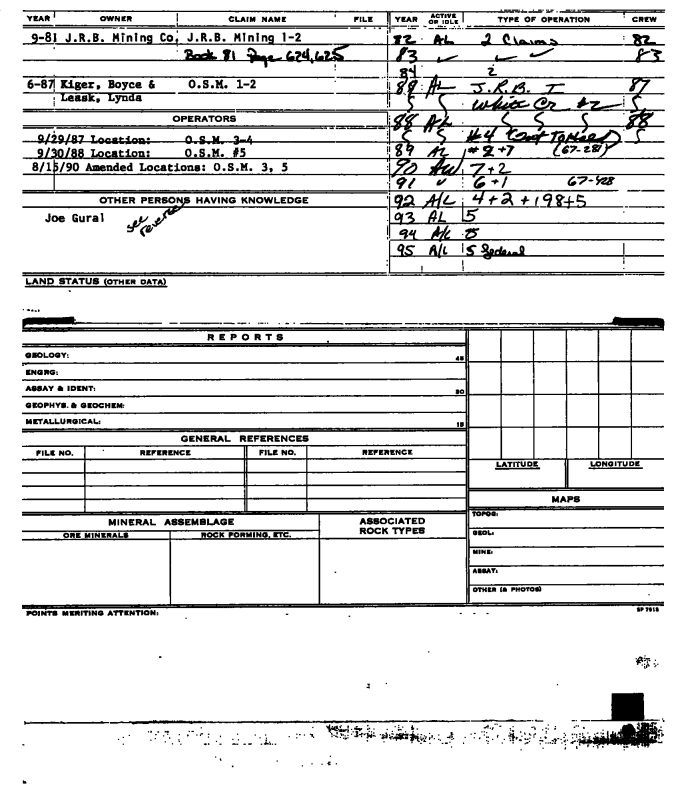 YEAR OWNER CLAIM NAME FILE YEAR ACTIVE OR IDLE TYPE OF OPERATION CREW
9-81 J.R.B. Mining Co. J.R.B. Mining 1-2
Book 81 Page 624,625
6-87 Kiger, Boyce & O.S.M. 1-2
Leask, Lynda
OPERATORS
9/29/87 Location: O.S.M. 3-4
9/30/88 Location: O.S.M. #5
8/15/90 Amended Locations: O.S.M. 3, 5
OTHER PERSONS HAVING KNOWLEDGE
Joe Gural see reverse
82 AL 2 Claims 82
83 ✓ ✓ ✓ 83
84 2
AL J.R.B. I 87
White Cr #2
88 88
#4
89 AL #2+7 (67-281)
90 7+2
91 6+1 67-428
92 A/L 4+2+198+5
93 AL 5
94 A/L 5
95 A/L 5 Federal
LAND STATUS (OTHER DATA)
REPORTS
GEOLOGY: 45
ENGRG:
ASSAY & IDENT: 30
GEOPHYS. & GEOCHEM:
METALLURGICAL: 15
GENERAL REFERENCES
FILE NO. REFERENCE FILE NO. REFERENCE
LATITUDE LONGITUDE
MAPS
TOPOG:
GEOL:
MINE:
ASSAY:
OTHER (& PHOTOS)
MINERAL ASSEMBLAGE ASSOCIATED ROCK TYPES
ORE MINERALS ROCK FORMING, ETC.
POINTS MERITING ATTENTION: SP 7915